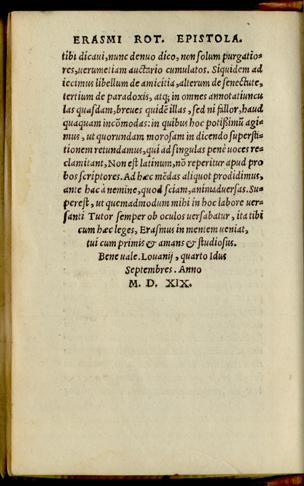 ERASMI ROT. EPISTOLA.
tibi dicaui, nunc denuo dico, non solum purgatio-
res, uerumetiam auctario cumulatos. Siquidem ad
iecimus libellum de amicitia, alterum de senectute,
tertium de paradoxis, atq; in omnes annotatiuncu
las quasdam, breues quidē illas, sed ni fallor, haud
quaquam incōmodas: in quibus hoc potißimū agi
mus, ut quorundam morosam in dicendo supersti-
tionem retundamus, qui ad singulas penè uoces re
clamitant, Non est latinum, nō reperitur apud pro
bos scriptores. Ad hæc mēdas aliquot prodidimus,
ante hac à nemine, quod sciam, animaduersas. Su-
perest, ut quemadmodum mihi in hoc labore uer
santi Tutor semper ob oculos uersabatur, ita tibi
cum hæc leges, Erasmus in mentem ueniat,
tui cum primis & amans & studiosus.
Bene uale. Louanij, quarto Idus
Septembres. Anno
M. D. XIX.